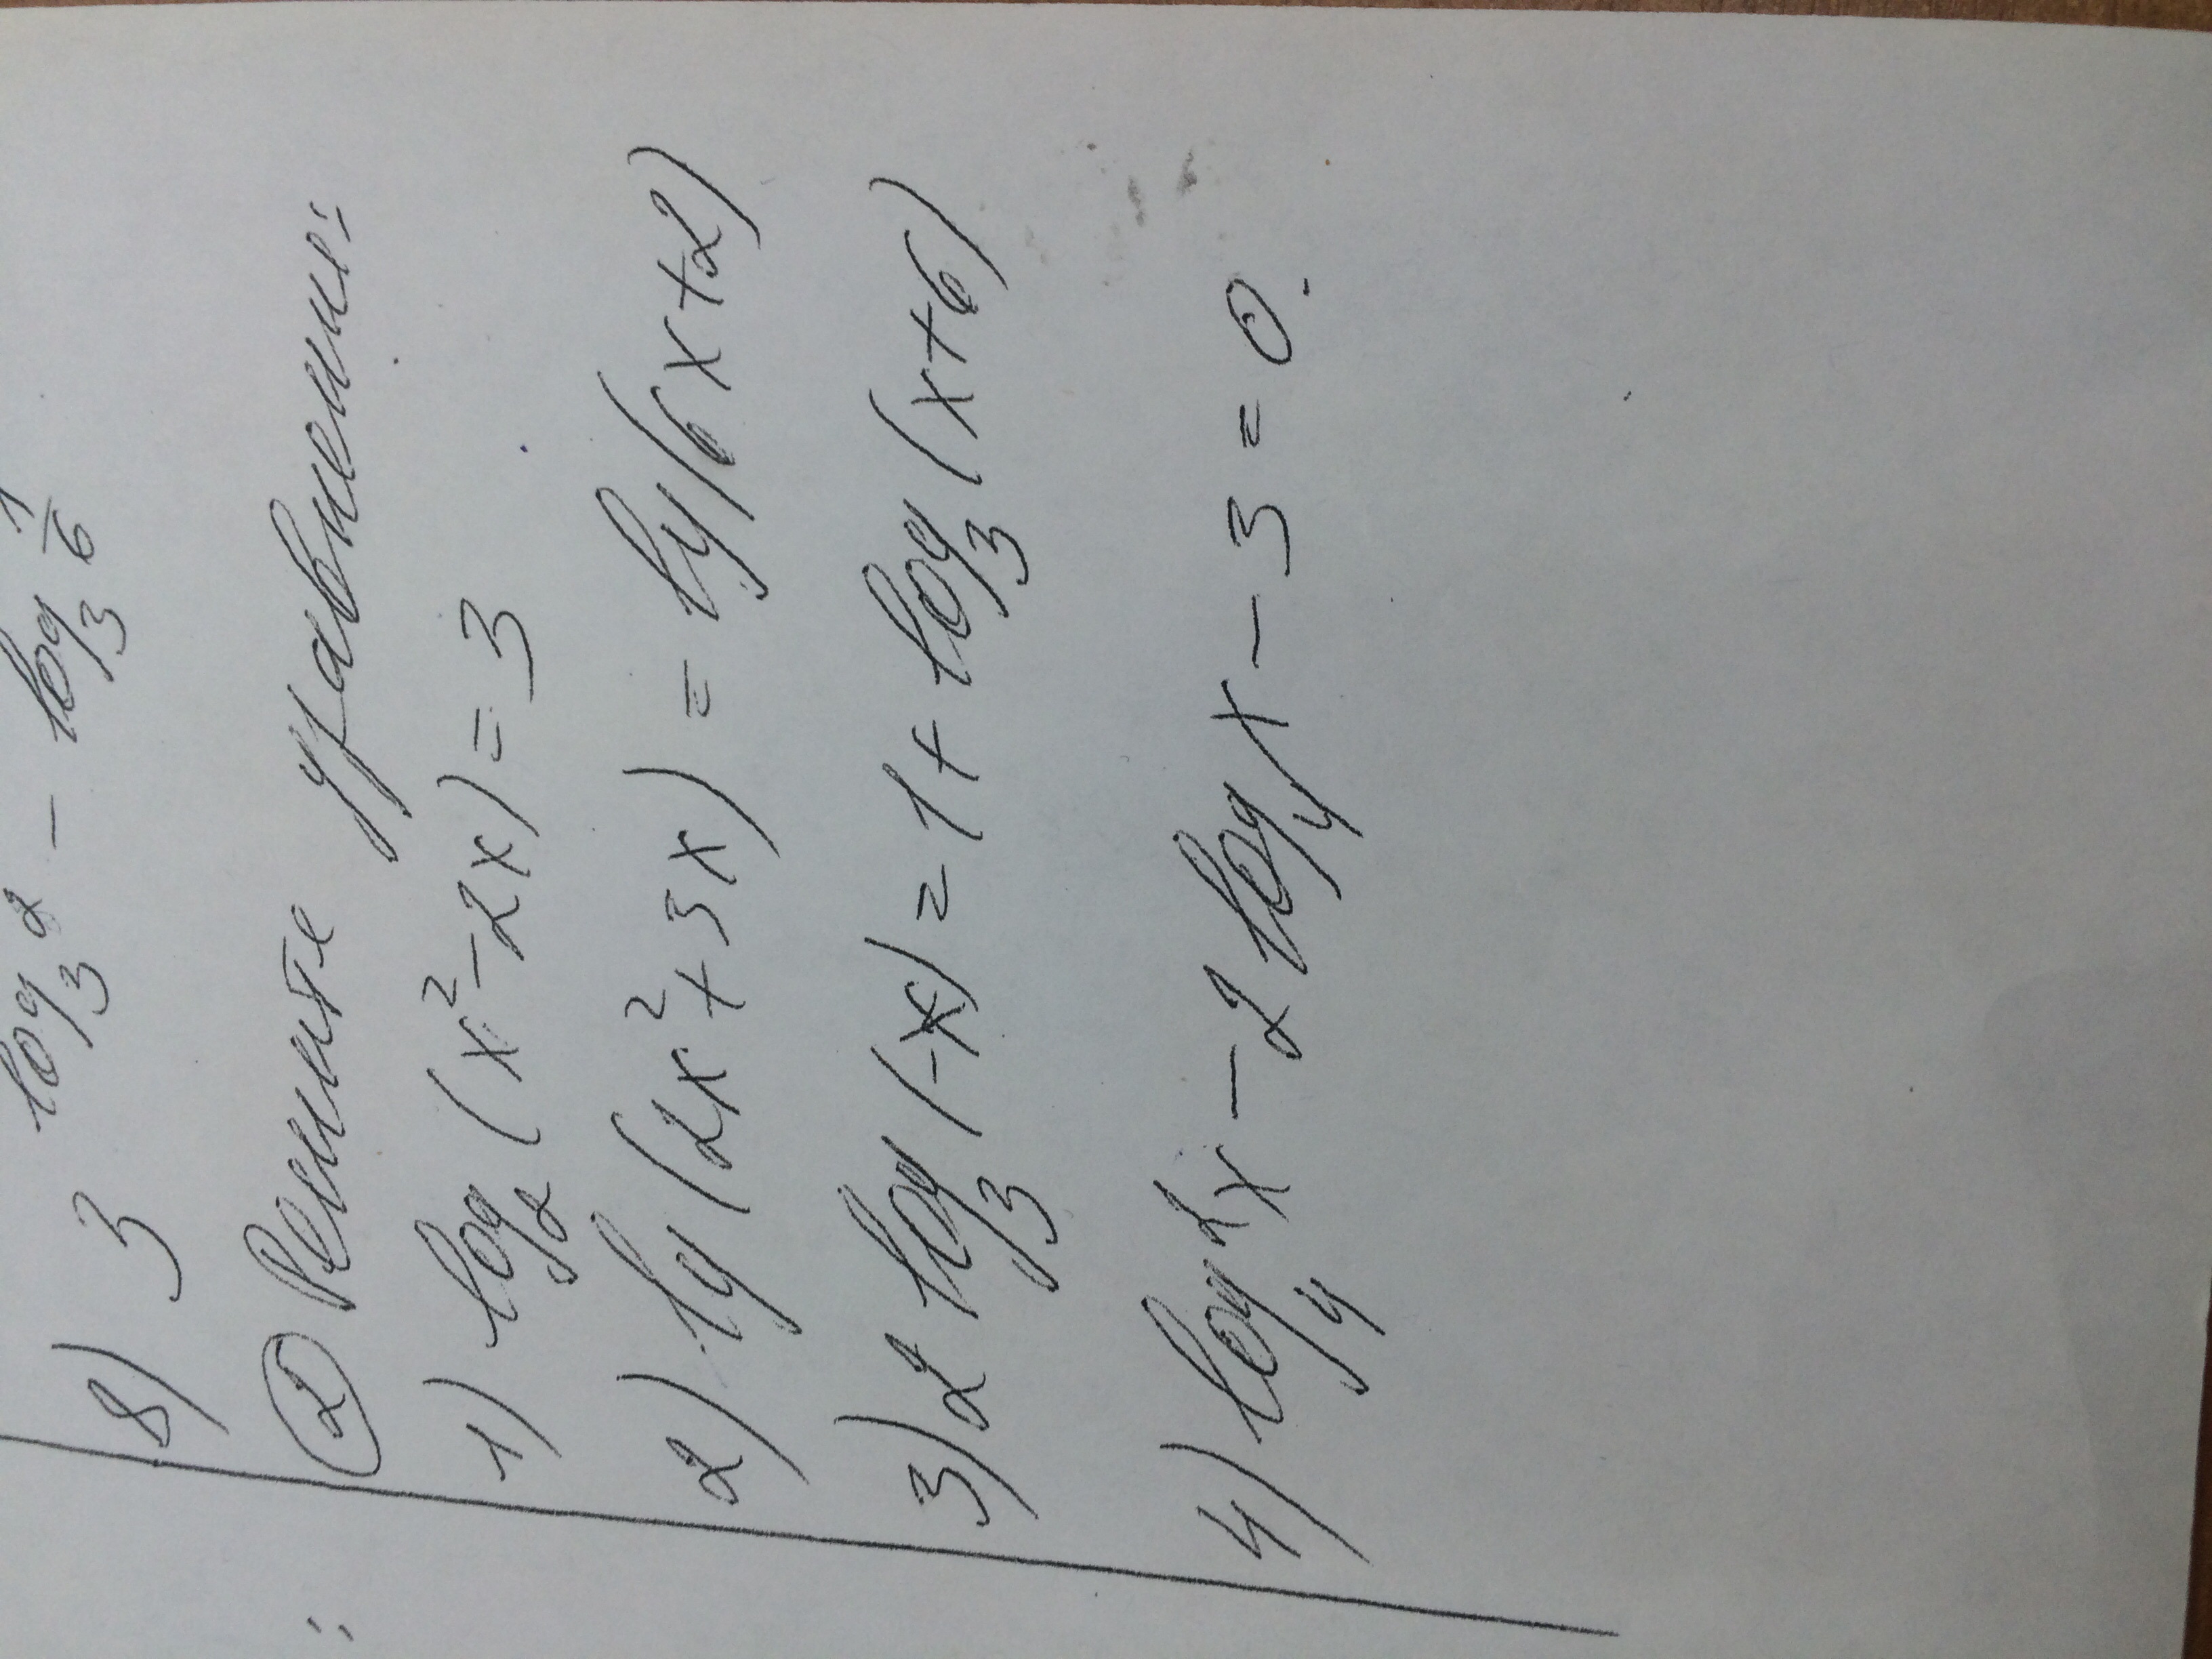 8) 3^(log₃2 - log₃ 1/6)
② Решите уравнения:
1) log₂(x² - 2x) = 3
2) lg(2x² + 3x) = lg(6x + 2)
3) 2 log₃(-x) = 1 + log₃(x + 6)
4) log₄²x - 2 log₄x - 3 = 0.